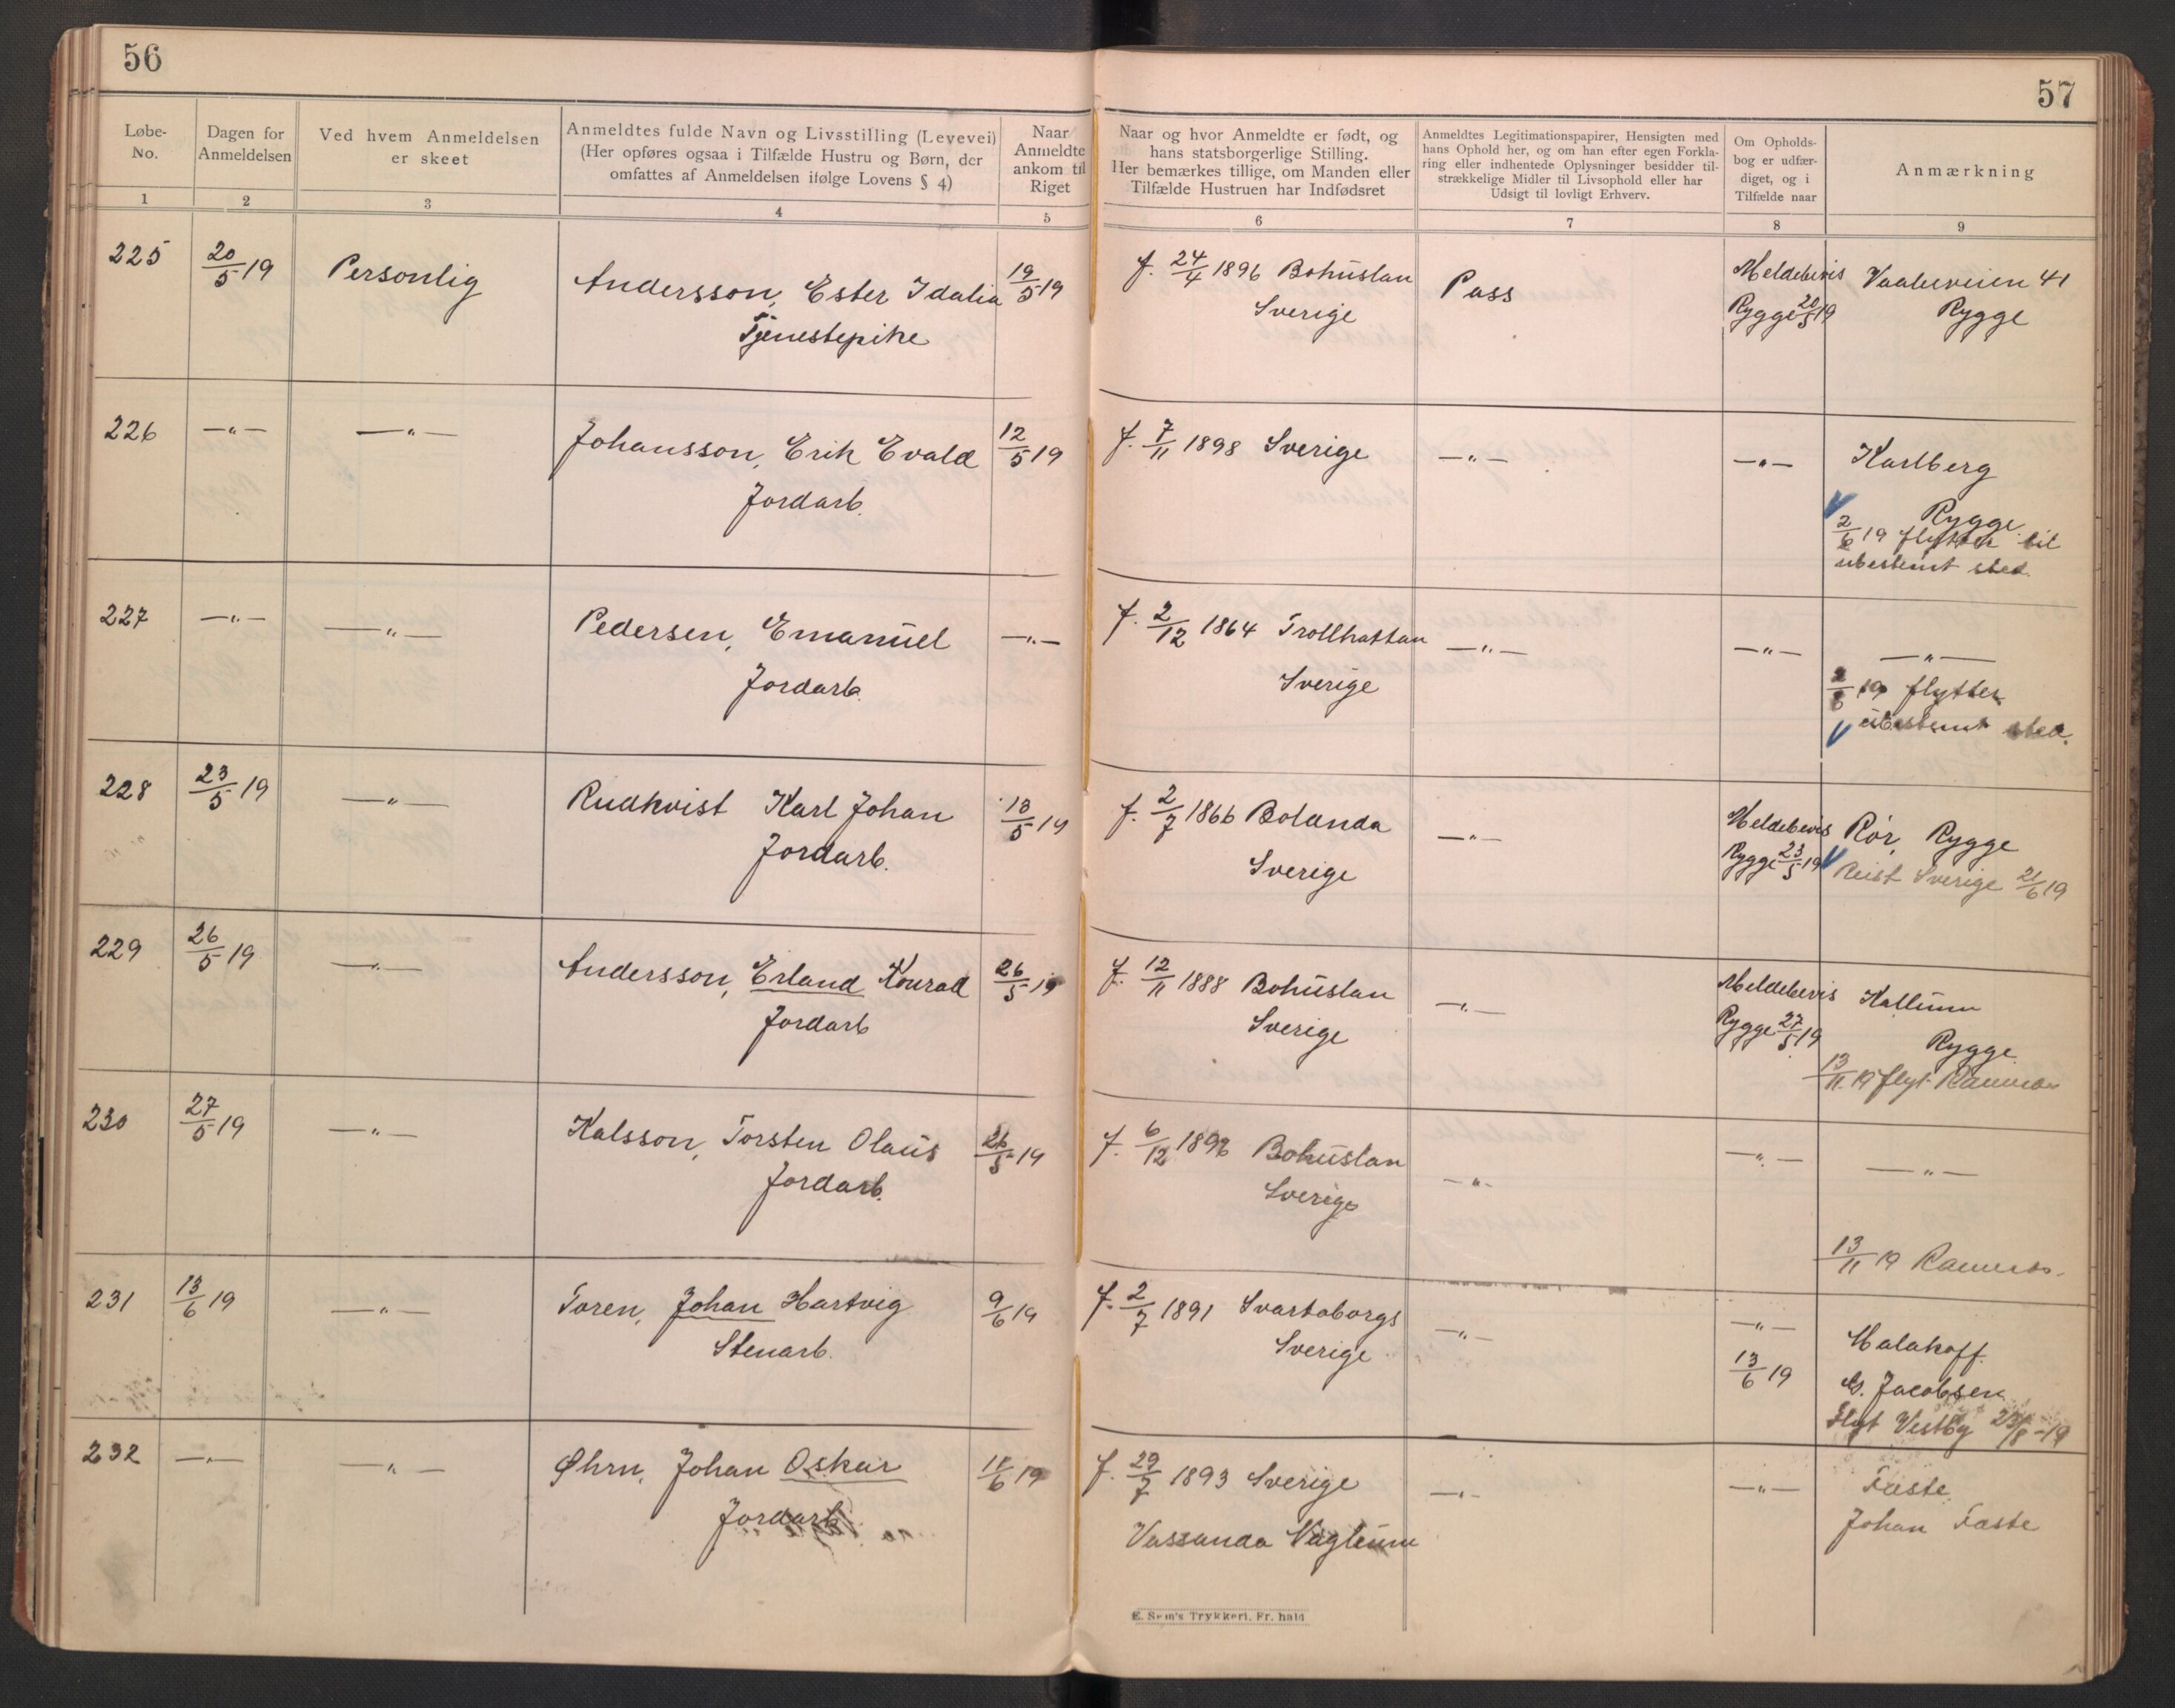 56
57
Løbe-No.
Dagen for Anmeldelsen
Ved hvem Anmeldelsen er skeet
Anmeldtes fulde Navn og Livsstilling (Levevei)
(Her opføres ogsaa i Tilfælde Hustru og Børn, der
omfattes af Anmeldelsen ifølge Lovens § 4)
Naar Anmeldte ankom til Riget
Naar og hvor Anmeldte er født, og
hans statsborgerlige Stilling.
Her bemærkes tillige, om Manden eller
Tilfælde Hustruen har Indfødsret
Anmeldtes Legitimationspapirer, Hensigten med
hans Ophold her, og om han efter egen Forkla-
ring eller indhentede Oplysninger besidder til-
strækkelige Midler til Livsophold eller har
Udsigt til lovligt Erhverv.
Om Opholds-
bog er udfær-
diget, og i
Tilfælde naar
Anmærkning
1 2 3 4 5 6 7 8 9
225 20/5 19 Personlig Andersson, Ester Idalia 19/5 19 f. 24/4 1896 Bohuslan Pass Meldebevis Vaalerveien 41
Tjenestepike Sverige Rygge 20/5 19 Rygge
226 —"— —"— Johansson, Erik Evald 12/5 19 f. 7/11 1898 Sverige —"— —"— Karlberg
Jordarb. Rygge
2/6 19 flytter til
ubestemt sted.
227 —"— —"— Pedersen, Emanuel —"— f. 2/12 1864 Trollhattan —"— —"— —"—
Jordarb. Sverige
19 flytter
ubestemt sted.
228 23/5 19 —"— Rudkvist Karl Johan 13/5 19 f. 2/7 1866 Bolanda —"— Meldebevis Rør, Rygge
Jordarb. Sverige Rygge 23/5 19 Reist Sverige 21/6 19
229 26/5 19 —"— Andersson, Erland Konrad 26/5 19 f. 12/11 1888 Bohuslan —"— Meldebevis Kallum
Jordarb Sverige Rygge 27/5 19 Rygge.
13/11 19 flyt
230 27/5 19 —"— Kalsson, Torsten Olaus 26/5 19 f. 6/12 1896 Bohuslan —"— —"— —"—
Jordarb. Sverige
13/11 19
231 13/6 19 —"— Toren, Johan Hartvig 9/6 19 f. 2/7 1891 Svartoborgs —"— —"— Malakoff.
Stenarb. Sverige 13/6 19 Jacobsen
Flyt Vestby 23/8 -19
232 —"— —"— Øhrn, Johan Oskar 11/6 19 f. 29/7 1893 Sverige —"— —"— Faste
Jordarb. Vassanda Naglum Johan Faste
E. Sem's Trykkeri, Fr. hald